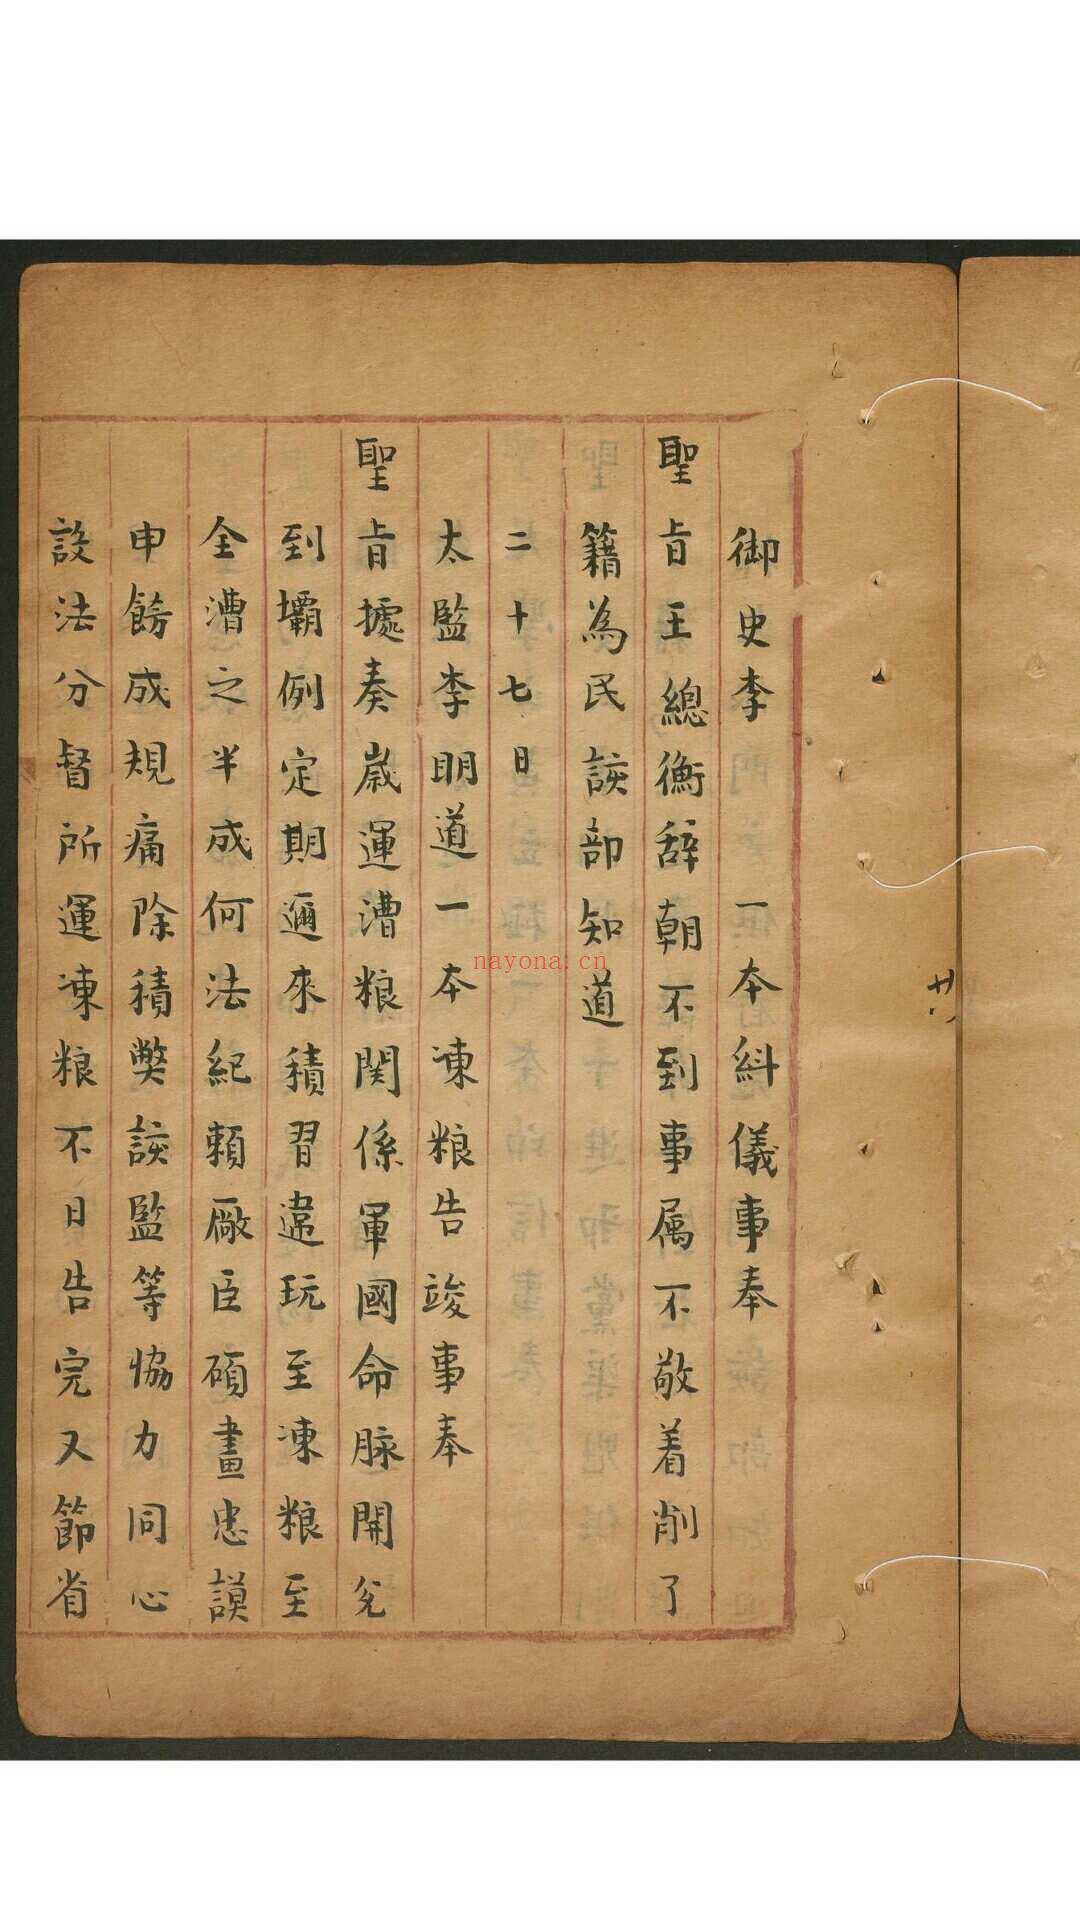 御史李 一本糾儀事奉
聖旨王總衡辞朝不到事属不敬着削了
籍為民該部知道
二十七日
太監李明道一本凍粮告竣事奉
聖旨據奏嵗運漕粮関係軍國命脉開兌
到壩例定期邇來積習違玩至凍粮至
全漕之半成何法紀賴厰臣碩畫忠謨
申飭成規痛除積獘該監等恊力同心
設法分督所運凍粮不日告完又節省
nayona.cn